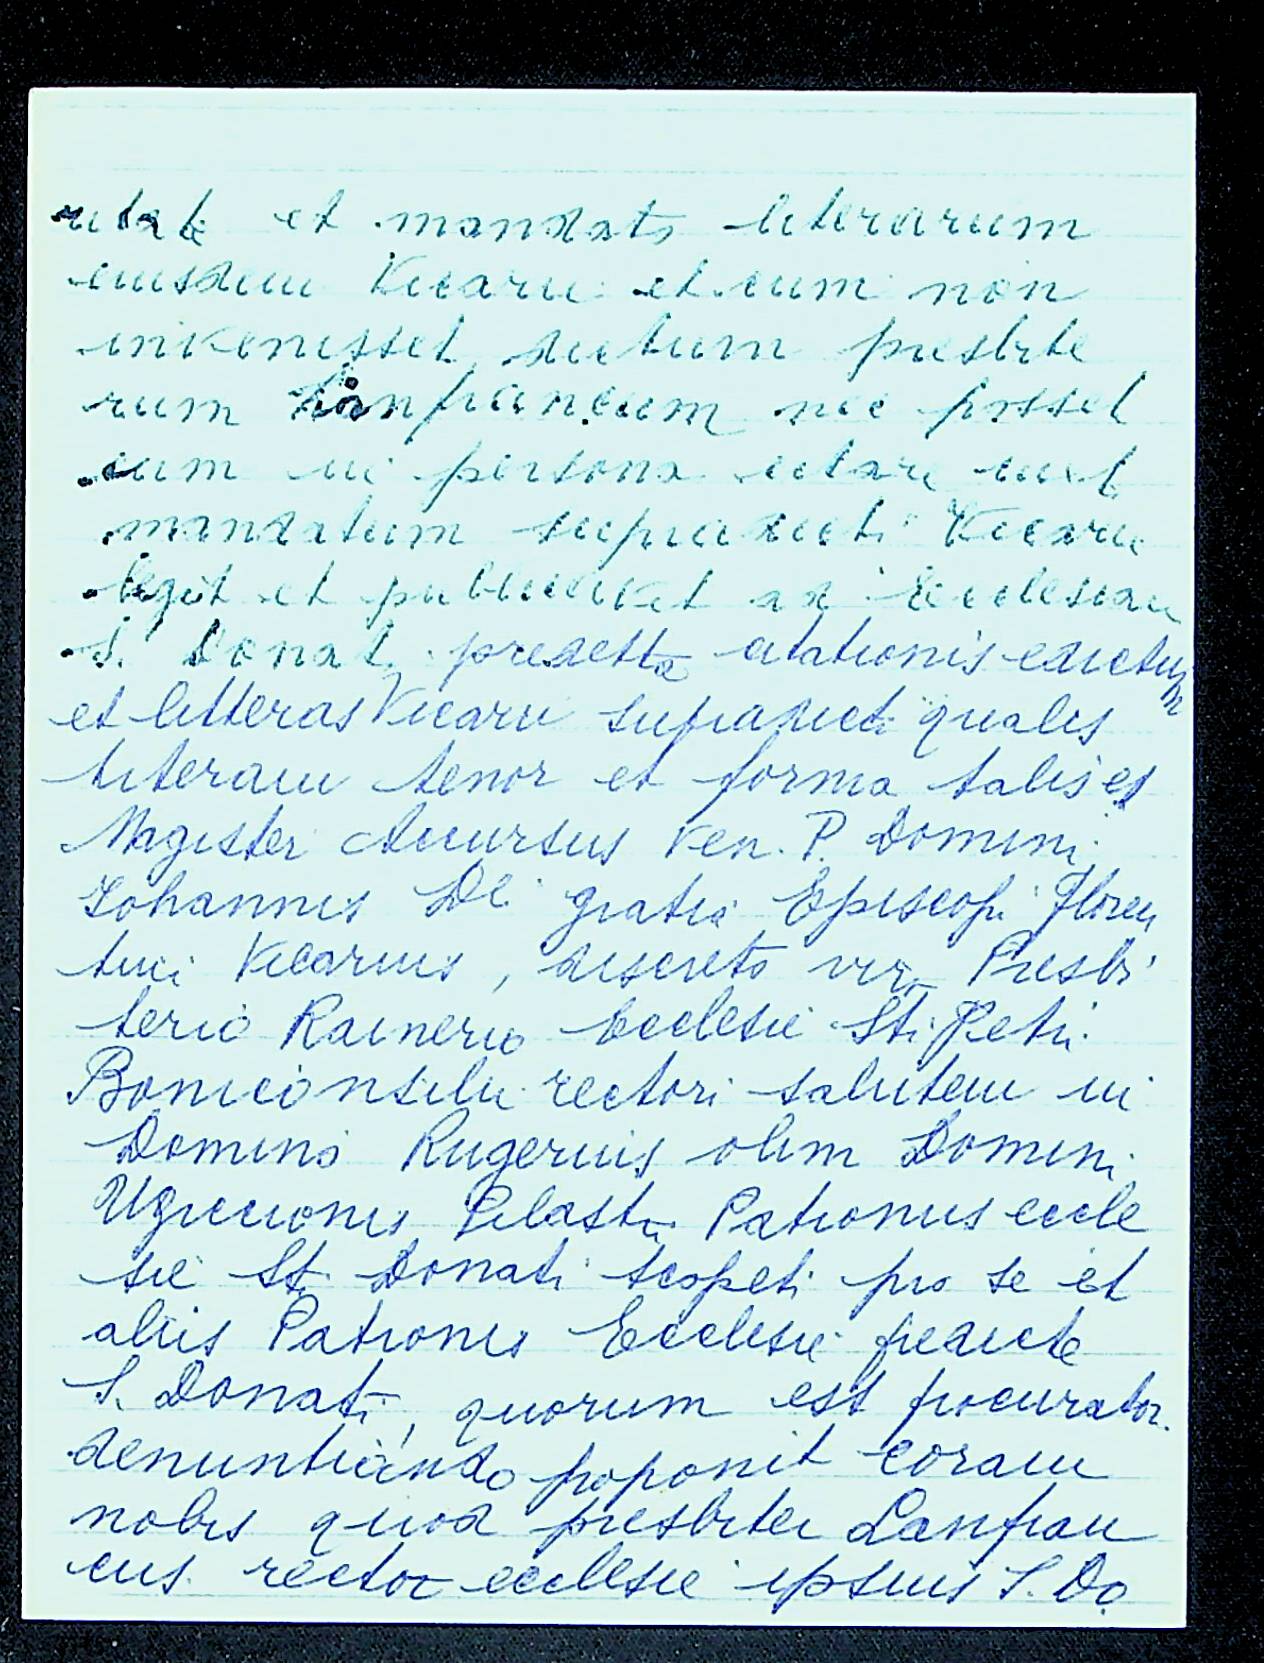 ritate et mandato literarum
eiusdem Vicarii et cum non
invenisset dictum presbite
rum Lanfrancum nec posset
eum in persona citare
mandatum supradicti Vicarii
legit et publicavit ad Ecclesiam
S. Donati predicte citationis edictum
et litteras Vicarii supradicti qualis
literarum tenor et forma talis est
Magister Accursus Ven. P. Domini
Johannis Dei gratia Episcopi Floren
tini Vicarius, discreto viro Presbi
terio Rainerio Ecclesie Sti Petri
Boniconsilii rectori salutem in
Domino Rugerius olim Domini
Ugiccionis Pilastri Patronus eccle
sie St. Donati Scopeti pro se et
aliis Patronis Ecclesie predicte
S. Donati, quorum est procurator
denuntiando proponit coram
nobis quod presbiter Lanfran
cus rector ecclesie ipsius S. Do